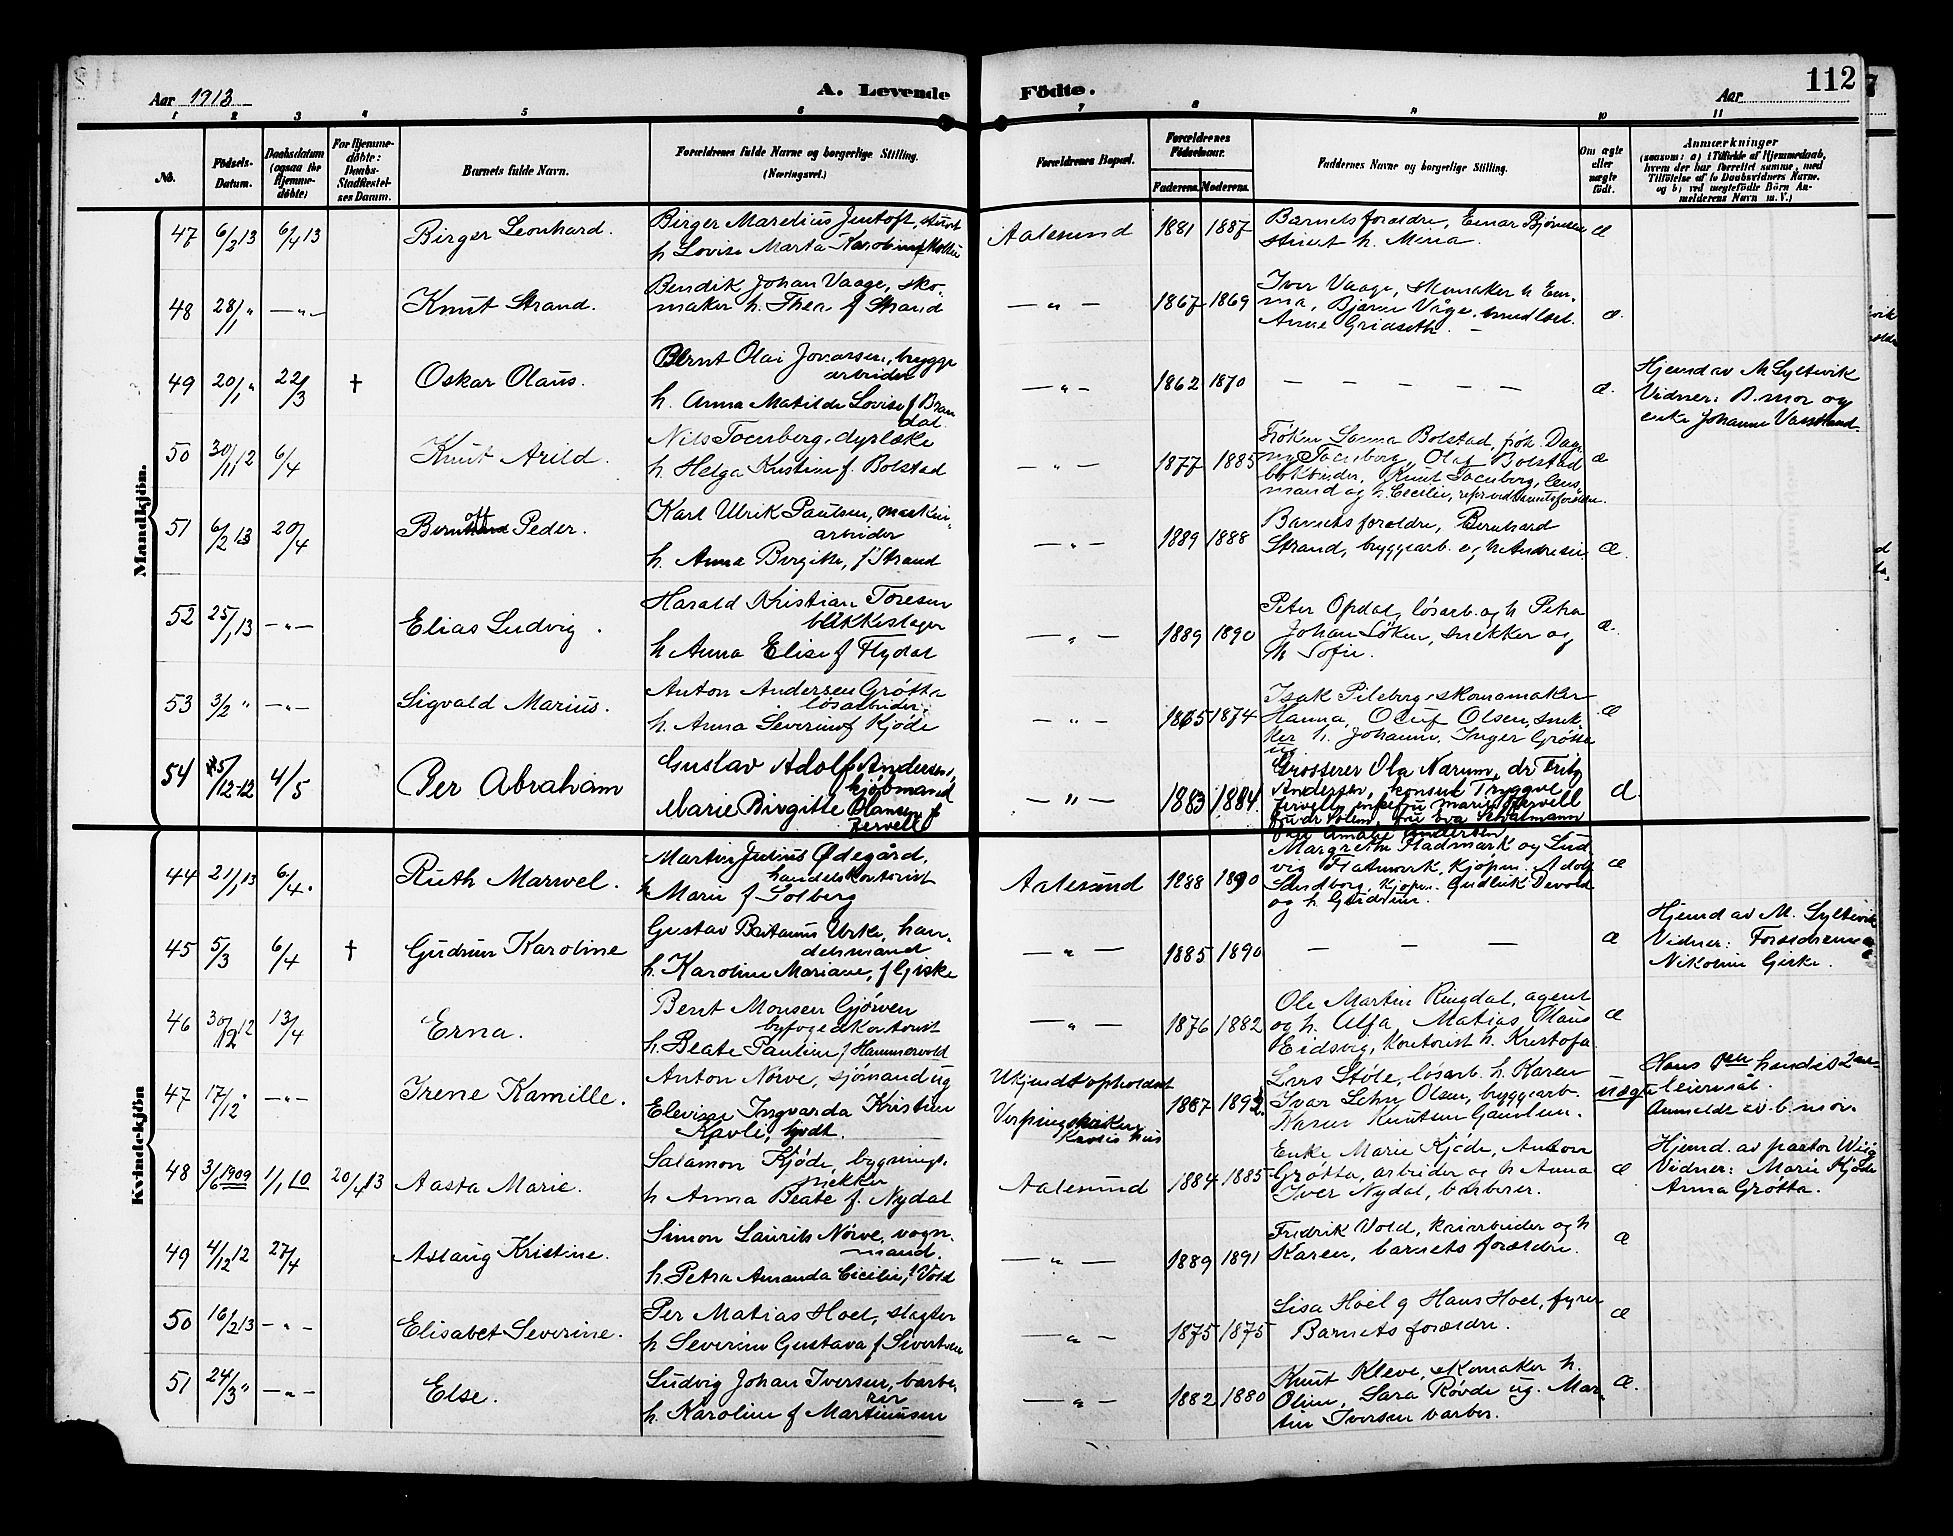 112
Aar 1913
A. Levende Födte.
Aar
1 2 3 4 5 6 7 8 9 10 11
No.
Födsels-Datum.
Daabsdatum (ogsaa for Hjemme-döbte)
For Hjemme-döbte: Daabs-Stadfæstel-ses Datum.
Barnets fulde Navn.
Forældrenes fulde Navne og borgerlige Stilling. (Næringsvei.)
Forældrenes Bopæl.
Forældrenes Födselsaar.
Faderens. Moderens.
Faddernes Navne og borgerlige Stilling.
Om ægte eller uægte födt.
Anmærkninger
(saasom: a) i Tilfælde af Hjemmedaab, hvem der har forrettet samme, med Tilföielse af to Daabsvidners Navne, og b) ved uægtefödte Börn An-melderens Navn m. V.)
Mandkjön.
47 6/2 13 6/4 13 Birger Leonhard.
Birger Marelius Jentoft,
h Lovise Marta Karoline
Aalesund 1881 1887
Barnets forældre, Einar Bjørnsen
h. Mina. æ
48 28/1 " — " — Knut Strand.
Bendik Johan Vaage, sko-
maker h. Thea f Strand
— " — 1867 1869
Iver Vaage, skomaker h Em-
ma, Bjarne Våge
Anne Gridseth. æ.
49 20/1 " 22/3 † Oskar Olaus.
Bernt Olai Jonassen, brygge
arbeider
h. Anna Matilde Lovise f Bran
dal.
— " — 1862 1870
— — — — — æ.
Hjemd av M Syltevik
Vidner: B. mor og
enke Johanne
50 30/11 12 6/4 Knut Arild.
Nils Tornberg, dyrlæke
h. Helga Kristine f. Bolstad
— " — 1877 1885
Frøken Bolstad, frøk. Dag-
ny Olaf Bolstad
bokbinder, Knut lens
mand og h. Cecilie, æ
51 6/2 13 20/4 Peder.
Karl Ulrik Paulsen, maskin-
arbeider
h. Anna Birgitte, f Strand
— " — 1889 1888
Barnets forældre, Bernhard
Strand, bryggearb. og h Andresine æ.
52 25/1 13 — " — Elias Ludvig.
Harald Kristian Toresen
blikkeslager
h Anna Elise f Flydal
— " — 1889 1890
Peter Opdal, løsarb. og h Petra
Johan Søken, snekker og
h Sofie. æ
53 3/2 " — " — Sigvald Marius.
Anton Andersen Grøtta
løsarbeider.
h. Anna Severine f Kjøde
— " — 1865 1874
Isak Pileberg, skomamaker
Hanna, Oluf Olsen, snek-
ker h. Johanne, Inger Grøtta æ
54 5/12-12 4/5 Per Abraham
Gustav Adolf Andersen,
kjøbmand
Marie Birgitte Hansen f
Fervell
— " — 1883 1884
Grosserer Ola Narum, dr Fritz
Andersen, konsul Tryggve
Fervell, enkefru Marie Fervell
fru dr Solem, fru Eva
fru Amalie Andersen æ.
Kvindekjön
44 21/1 13 6/4. Ruth Marwel.
Martin Julius Ødegård,
handelskontorist
h Marie f Solberg
Aalesund 1888 1890
Margrethe Fladmark og Lud
vig Flatmark, kjøpm. Adolf
Sandborg, kjøpm. Devold
og h. Gudrun. æ
45 5/3 6/4 † Gudrun Karoline
Gustav Urke, han-
delsmand
h. Karoline Mariane, f Giske
— " — 1885 1890
— — — æ
Hjemd av M. Syltevik
Vidner: Forældrene
Nikoline Giske.
46 30/12 12 13/4 Erna.
Bent Monsen Gjørven
byfogedkontorist
h. Beate Pauline f Hammervold
— " — 1876 1882
Ole Martin Ringdal, agent
og h. Alfa, Matias Olaus
Eidsvig, kontorist h. Kristofa æ
47 17/12 " — " — Irene Kamille.
Anton Nørve, sjømand ug
Elevisse Ingvarda Kristine
Kavli, hvdt.
Ukjendt opholdsst
hus
1887 1892.
Lars Støle, løsarb. h. Karen
Ivar Lehn Olsen, bryggearb.
Karen Knutsen uægte
Hans hendes 2net
leiermål.
Anmeldt av b. mor.
48 3/6 1909 1/1 10 20/4 13 Aasta Marie.
Salamon Kjøde, bygnings
snekker
h Anna Beate f. Nydal
Aalesund 1884 1885
Enke Marie Kjøde, Anton
Grøtta, arbeider og h Anna
Iver Nydal, barberer. æ
Hjemd. av pastor Wiig
Vidner: Marie Kjøde
Anna Grøtta.
49 4/12 12 27/4 Aslaug Kristine.
Simon Laurits Nørve, vogn-
mand.
h. Petra Amanda Cicilie, f Vold
— " — 1889 1891
Fredrik Vold, kaiarbeider og h
Karen, barnets forældre. æ
50 16/2 13 — " — Elisabet Severine.
Per Matias Hoel, slagter
h Severine Gustava f Sivertsen
— " — 1875 1875
Lisa Hoel g Hans Hoel, fyrer
Barnets forældre. æ
51 24/3 " — " — Else.
Ludvig Johan Iversen, barbe-
rer
h. Karoline f Martinussen
— " — 1882 1880
Knut Kleve, skomaker h.
Oline, Sara Røvde ug. Mar-
tin Iversen barber. æ.